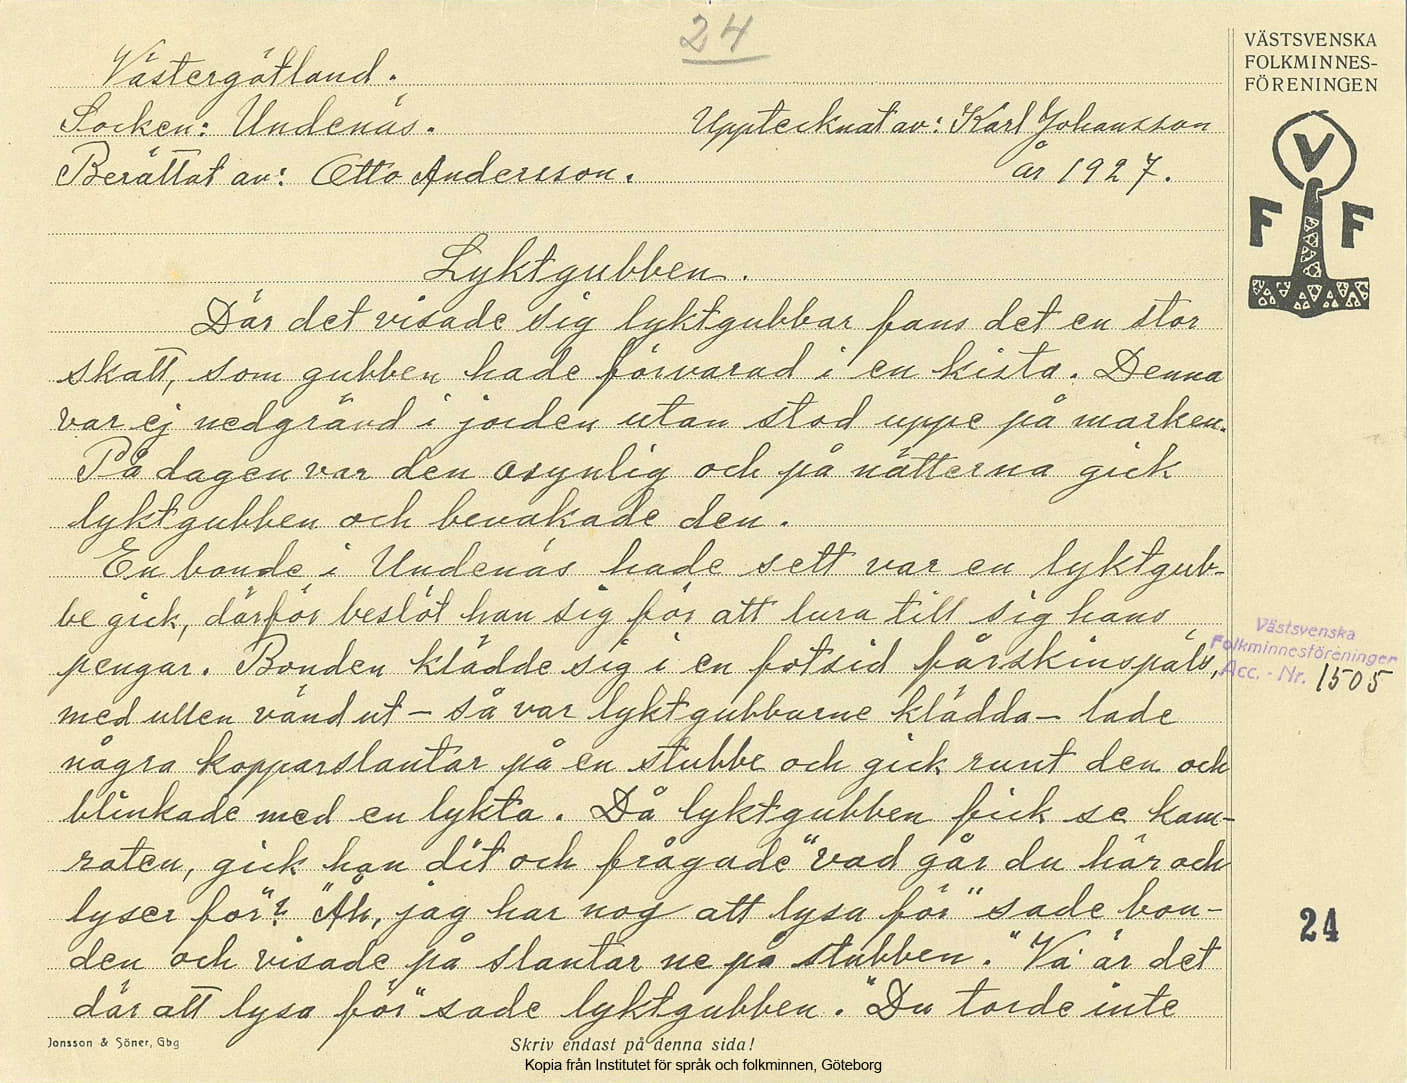 24
VÄSTSVENSKA
FOLKMINNES-
FÖRENINGEN
V
F F
Västergötland.
Socken: Undenäs.
Upptecknat av: Karl Johansson
Berättat av: Otto Andersson.
år 1927.
Lyktgubben.
Där det visade sig lyktgubbar fans det en stor
skatt, som gubben hade förvarad i en kista. Denna
var ej nedgrävd i jorden utan stod uppe på marken.
På dagen var den osynlig och på nätterna gick
lyktgubben och bevakade den.
En bonde i Undenäs hade sett var en lyktgub-
be gick, därför beslöt han sig för att lura till sig hans
pengar. Bonden klädde sig i en fotsid fårskinspäls,
med ullen vänd ut – så var lyktgubbarne klädda – lade
några kopparslantar på en stubbe och gick runt den och
blinkade med en lykta. Då lyktgubben fick se kam-
raten, gick han dit och frågade "vad går du här och
lyser för"? "Åh, jag har nog att lysa för" sade bon-
den och visade på slantarne på stubben. "Va' är det
där att lysa för" sade lyktgubben. "Du torde inte
Västsvenska
Folkminnesföreningen
Acc. - Nr. 1505
24
Jonsson & Söner, Gbg
Skriv endast på denna sida!
Kopia från Institutet för språk och folkminnen, Göteborg